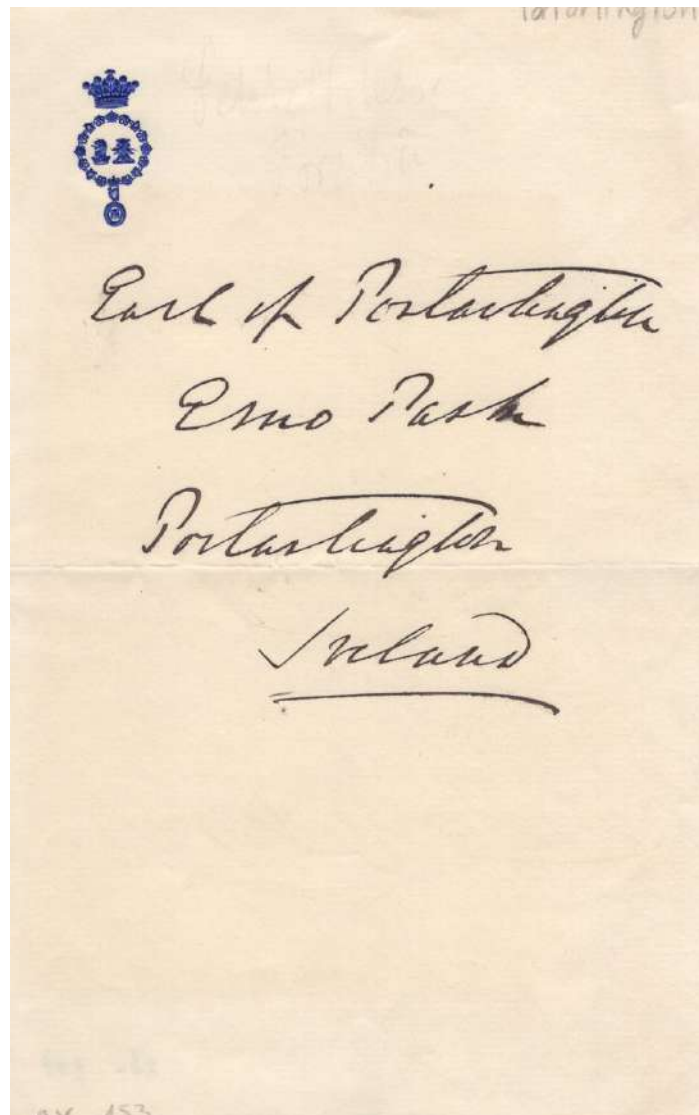 Portarlington
Earl of Portarlington
Emo Park
Portarlington
Ireland
153